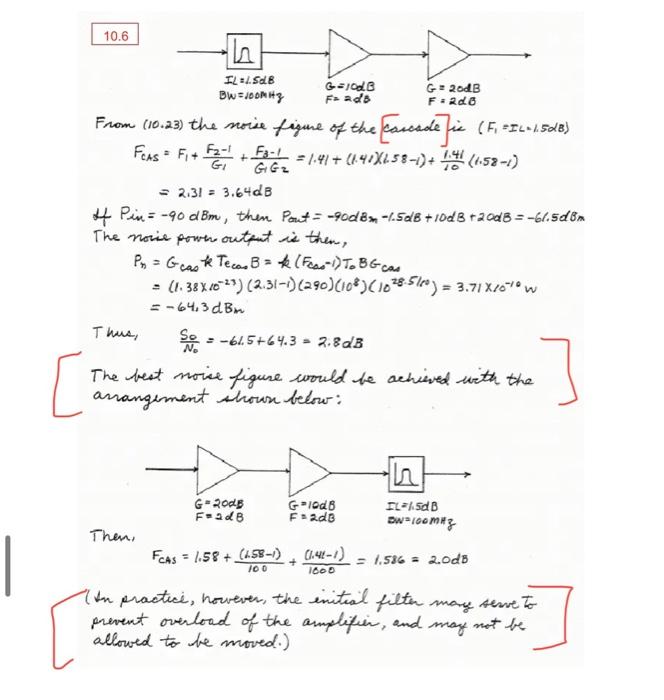 10.6
IL=1.5dB
BW=100MHz
G=10dB
F=2dB
G=20dB
F=2dB
From (10.23) the noise figure of the cascade is (F₁=IL=1.5dB)
FCAS = F₁ + F₂-1/G₁ + F₃-1/G₁G₂ = 1.41 + (1.41)(1.58-1) + 1.41/10 (1.58-1)
= 2.31 = 3.64dB
If Pin = -90 dBm, then Pout = -90dBm -1.5dB +10dB +20dB = -61.5dBm
The noise power output is then,
Pn = Gcas k Tecas B = k (Fcas-1) To B Gcas
= (1.38X10⁻²³)(2.31-1)(290)(10⁸)(10^28.5/10) = 3.71X10⁻¹⁰ W
= -64.3 dBm
Thus,
So/No = -61.5+64.3 = 2.8dB
The best noise figure would be achieved with the
arrangement shown below:
G=20dB
F=2dB
G=10dB
F=2dB
IL=1.5dB
BW=100MHz
Then,
FCAS = 1.58 + (1.58-1)/100 + (1.41-1)/1000 = 1.586 = 2.0dB
(In practice, however, the initial filter may serve to
prevent overload of the amplifier, and may not be
allowed to be moved.)